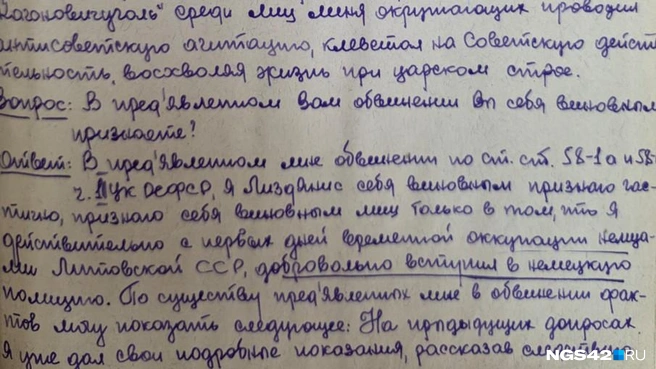 Кагоновичуголь" среди лиц меня окружающих проводил
антисоветскую агитацию, клеветал на Советскую дейст
тельность, восхволяя жизнь при царском строе.
Вопрос: В пред'явленном Вам обвинении Вы себя виновным
признаете?
Ответ: В пред'явленном мне обвинении по ст.ст. 58-1а и 58-
ч. II УК РСФСР, я Лизданис себя виновным признаю час-
тично, признаю себя виновным лиш только в том, что я
действительно с первых дней временной оккупации немца-
ми Литовской ССР, добровольно вступил в немецкую
полицию. По существу пред'явленных мне в обвинении фак-
тов могу показать следующее: На предыдущих допросах
я уже дал свои подробные показания, рассказав
NGS42.RU